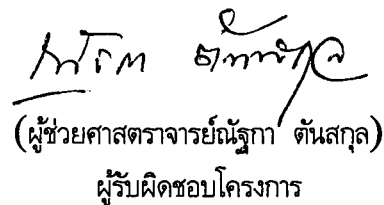 ณัฐกา ตันสกุล
(ผู้ช่วยศาสตราจารย์ณัฐกา ตันสกุล)
ผู้รับผิดชอบโครงการ